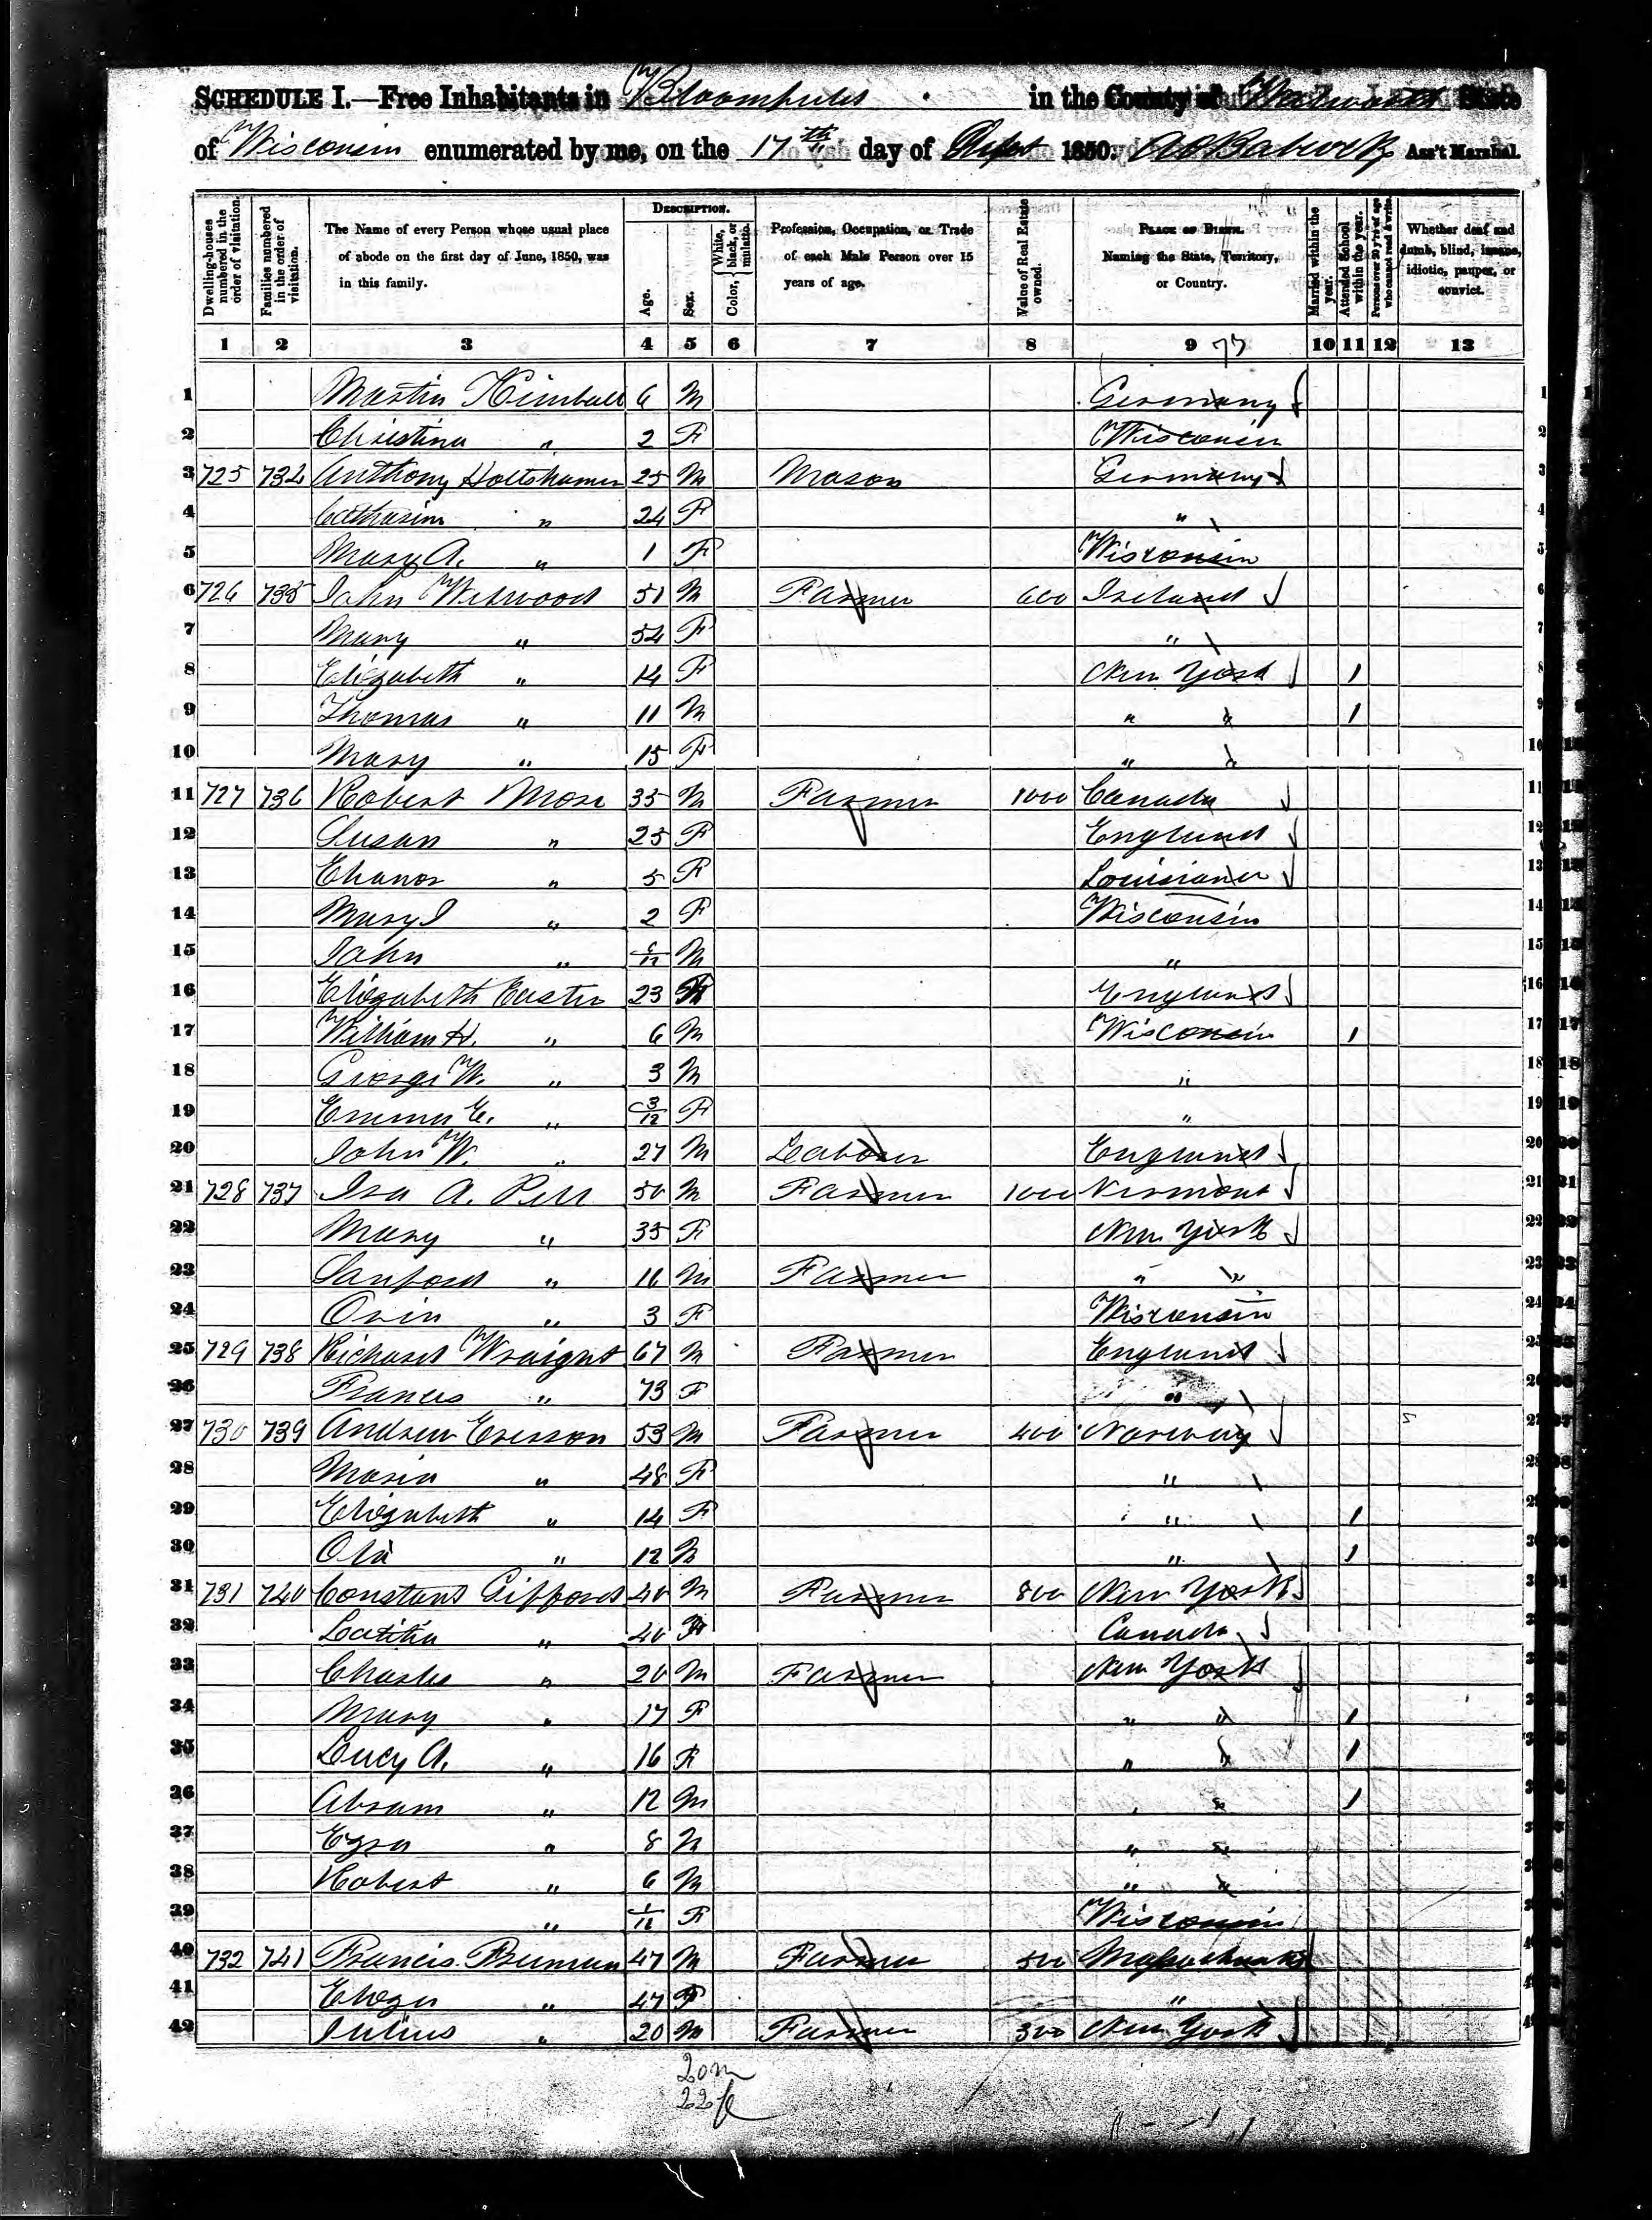 SCHEDULE I.—Free Inhabitants in Bloomfield in the County of Walworth State
of Wisconsin enumerated by me, on the 17th day of Sept 1850. Ass't Marshal.
Dwelling-houses numbered in the order of visitation. Families numbered in the order of visitation. The Name of every Person whose usual place of abode on the first day of June, 1850, was in this family. DESCRIPTION. Age. Sex. Color, { White, black, or mulatto. Profession, Occupation, or Trade of each Male Person over 15 years of age. Value of Real Estate owned. PLACE OF BIRTH. Naming the State, Territory, or Country. Married within the year. Attended School within the year. Persons over 20 y'rs of age who cannot read & write. Whether deaf and dumb, blind, insane, idiotic, pauper, or convict.
1 2 3 4 5 6 7 8 9 10 11 12 13
1 Martin Kimball 6 M Germany
2 Christina " 2 F Wisconsin
3 725 734 Anthony 25 M Mason Germany
4 Catharine " 24 F "
5 Mary A. " 1 F Wisconsin
6 726 735 John 51 M Farmer 600 Ireland
7 Mary " 54 F "
8 Elizabeth " 14 F New York 1
9 Thomas " 11 M " " 1
10 Mary " 15 F " "
11 727 736 Robert More 35 M Farmer 1000 Canada
12 Susan " 25 F England
13 Elanor " 5 F Louisiana
14 Mary J " 2 F Wisconsin
15 John " 6/12 M "
16 Elizabeth Easter 23 F England
17 William H. " 6 M Wisconsin 1
18 George W. " 3 M "
19 Emma E. " 3/12 F "
20 John W. " 27 M Laborer England
21 728 737 Ira A. Pell 50 M Farmer 1000 Vermont
22 Mary " 35 F New York
23 Sanford " 16 M Farmer " "
24 Orin " 3 F Wisconsin
25 729 738 Richard Wraight 67 M Farmer England
26 Frances " 73 F "
27 730 739 Andrew Everson 53 M Farmer 400 Norway
28 Maria " 48 F "
29 Elizabeth " 14 F " 1
30 Ola " 12 M " 1
31 731 740 Constant Gifford 40 M Farmer 800 New York
32 Latitia " 40 F Canada
33 Charles " 20 M Farmer New York
34 Mary " 17 F " " 1
35 Lucy A. " 16 F " " 1
36 Abram " 12 M " " 1
37 Ezra " 8 M " "
38 Robert " 6 M " "
39 " 1/12 F Wisconsin
40 732 741 Francis 47 M Farmer 500 Massachusetts
41 Eliza " 47 F "
42 Julius " 20 M Farmer 300 New York
20 m
22 f